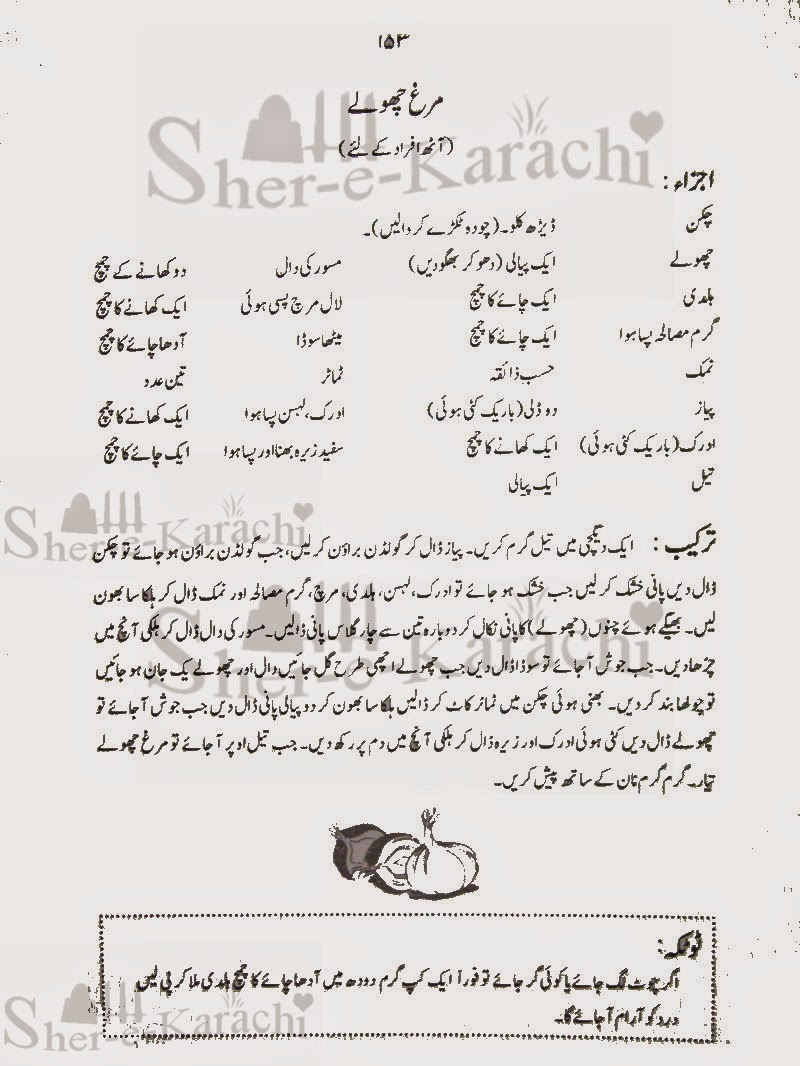 ۱۵۳
مرغ چھولے
(آٹھ افراد کے لئے)
اجزاء :
چکن ڈیڑھ کلو۔ (چودہ ٹکڑے کر دالیں)۔
چھولے ایک پیالی (دھو کر بھگو دیں) مسور کی دال دو کھانے کے چمچ
ہلدی ایک چائے کا چمچ لال مرچ پسی ہوئی ایک کھانے کا چمچ
گرم مصالحہ پسا ہوا ایک چائے کا چمچ میٹھا سوڈا آدھا چائے کا چمچ
نمک حسب ذائقہ ٹماٹر تین عدد
پیاز دو ڈلی (باریک کٹی ہوئی) ادرک، لہسن پسا ہوا ایک کھانے کا چمچ
ادرک (باریک کٹی ہوئی) ایک کھانے کا چمچ سفید زیرہ بھنا اور پسا ہوا ایک چائے کا چمچ
تیل ایک پیالی
ترکیب : ایک دیگچی میں تیل گرم کریں۔ پیاز ڈال کر گولڈن براؤن کر لیں، جب گولڈن براؤن ہو جائے تو چکن
ڈال دیں پانی خشک کر لیں جب خشک ہو جائے تو ادرک، لہسن، ہلدی، مرچ، گرم مصالحہ اور نمک ڈال کر ہلکا سا بھون
لیں۔ بھیگے ہوئے چنوں (چھولے) کا پانی نکال کر دوبارہ تین سے چار گلاس پانی ڈالیں۔ مسور کی دال ڈال کر ہلکی آنچ میں
چڑھا دیں۔ جب جوش آ جائے تو سوڈا ڈال دیں جب چھولے اچھی طرح گل جائیں دال اور چھولے یک جان ہو جائیں
تو چولھا بند کر دیں۔ بھنی ہوئی چکن میں ٹماٹر کاٹ کر ڈالیں ہلکا سا بھون کر دو پیالی پانی ڈال دیں جب جوش آ جائے تو
چھولے ڈال دیں کٹی ہوئی ادرک اور زیرہ ڈال کر ہلکی آنچ میں دم پر رکھ دیں۔ جب تیل اوپر آ جائے تو مرغ چھولے
تیار۔ گرم گرم نان کے ساتھ پیش کریں۔
ٹوٹکہ:
اگر چوٹ لگ جائے یا کوئی گر جائے تو فوراً ایک کپ گرم دودھ میں آدھا چائے کا چمچ ہلدی ملا کر پی لیں
درد کو آرام آ جائے گا۔
Sher-e-Karachi
Sher-e-Karachi
Sher-e-Karachi
Sher-e-Karachi